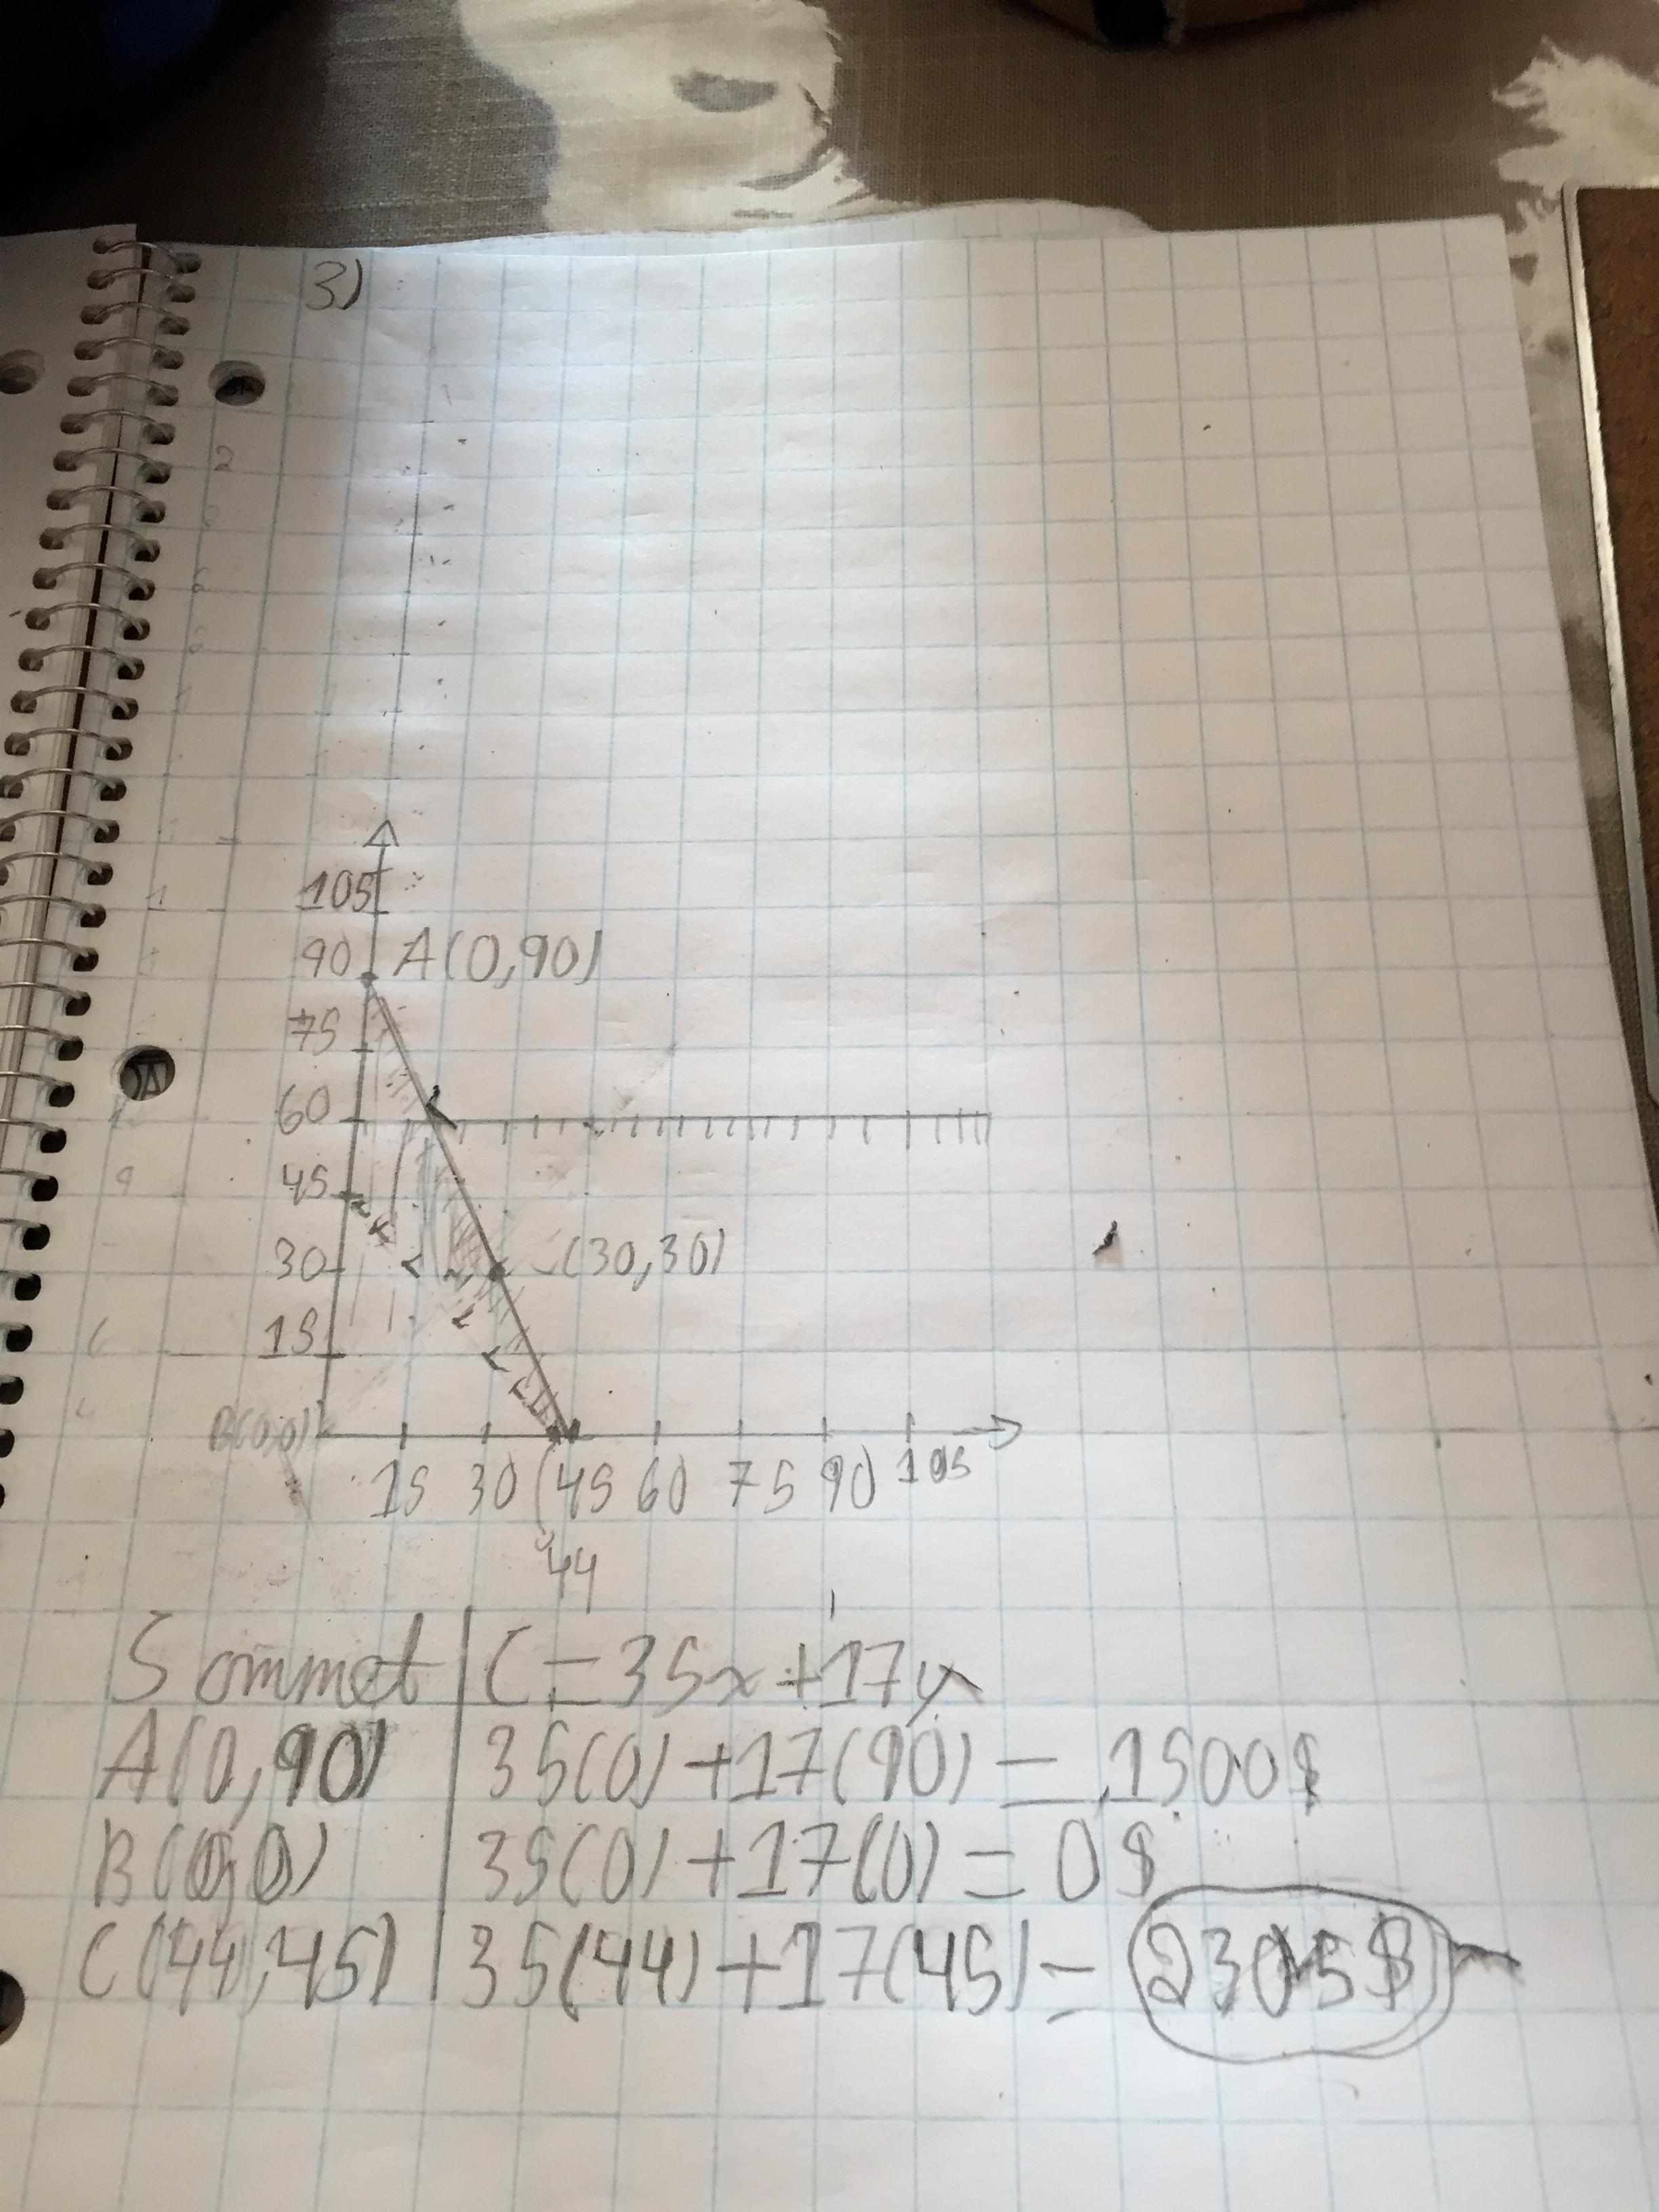 3)
105
90 A(0,90)
75
60
45
30 (30,30)
15
B(0,0)
15 30 45 60 75 90 105
44
Sommet | C=35x+17y
A(0,90) | 35(0)+17(90)=1500$
B(0,0) | 35(0)+17(0)=0$
C(44,45) | 35(44)+17(45)=2305$